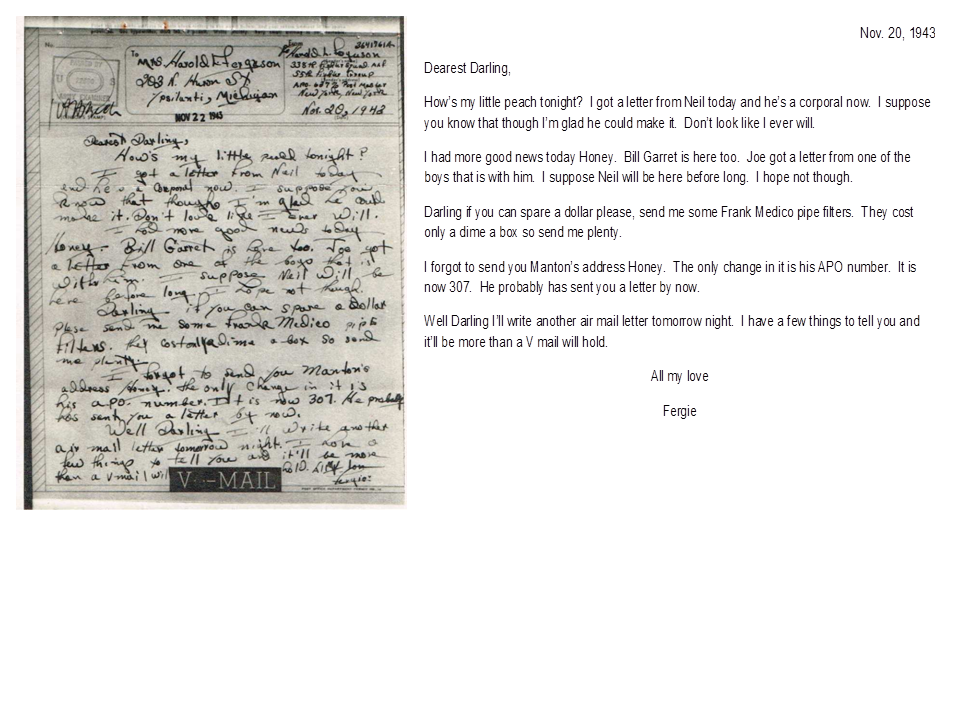 No.
To
Mrs Harold L Ferguson
203 N. Huron St
Ypsilanti, Michigan
NOV 22 1943
Harold L. Ferguson
New York, New York
Nov. 20, 1943
Dearest Darling,
How's my little peach tonight?
I got a letter from Neil today
and he's a corporal now. I suppose you
know that though I'm glad he could
make it. Don't look like I ever will.
I had more good news today
Honey. Bill Garret is here too. Joe got
a letter from one of the boys that is
with him. I suppose Neil will be
here before long. I hope not though.
Darling if you can spare a dollar
please send me some Frank Medico pipe
filters. they cost only a dime a box so send
me plenty.
I forgot to send you Manton's
address Honey. the only change in it is
his APO. number. It is now 307. He probably
has sent you a letter by now.
Well Darling I'll write another
air mail letter tomorrow night. I have a
few things to tell you and it'll be more
than a V mail will hold. All my love
Fergie
V-MAIL
Nov. 20, 1943
Dearest Darling,
How's my little peach tonight? I got a letter from Neil today and he's a corporal now. I suppose
you know that though I'm glad he could make it. Don't look like I ever will.
I had more good news today Honey. Bill Garret is here too. Joe got a letter from one of the
boys that is with him. I suppose Neil will be here before long. I hope not though.
Darling if you can spare a dollar please, send me some Frank Medico pipe filters. They cost
only a dime a box so send me plenty.
I forgot to send you Manton's address Honey. The only change in it is his APO number. It is
now 307. He probably has sent you a letter by now.
Well Darling I'll write another air mail letter tomorrow night. I have a few things to tell you and
it'll be more than a V mail will hold.
All my love
Fergie